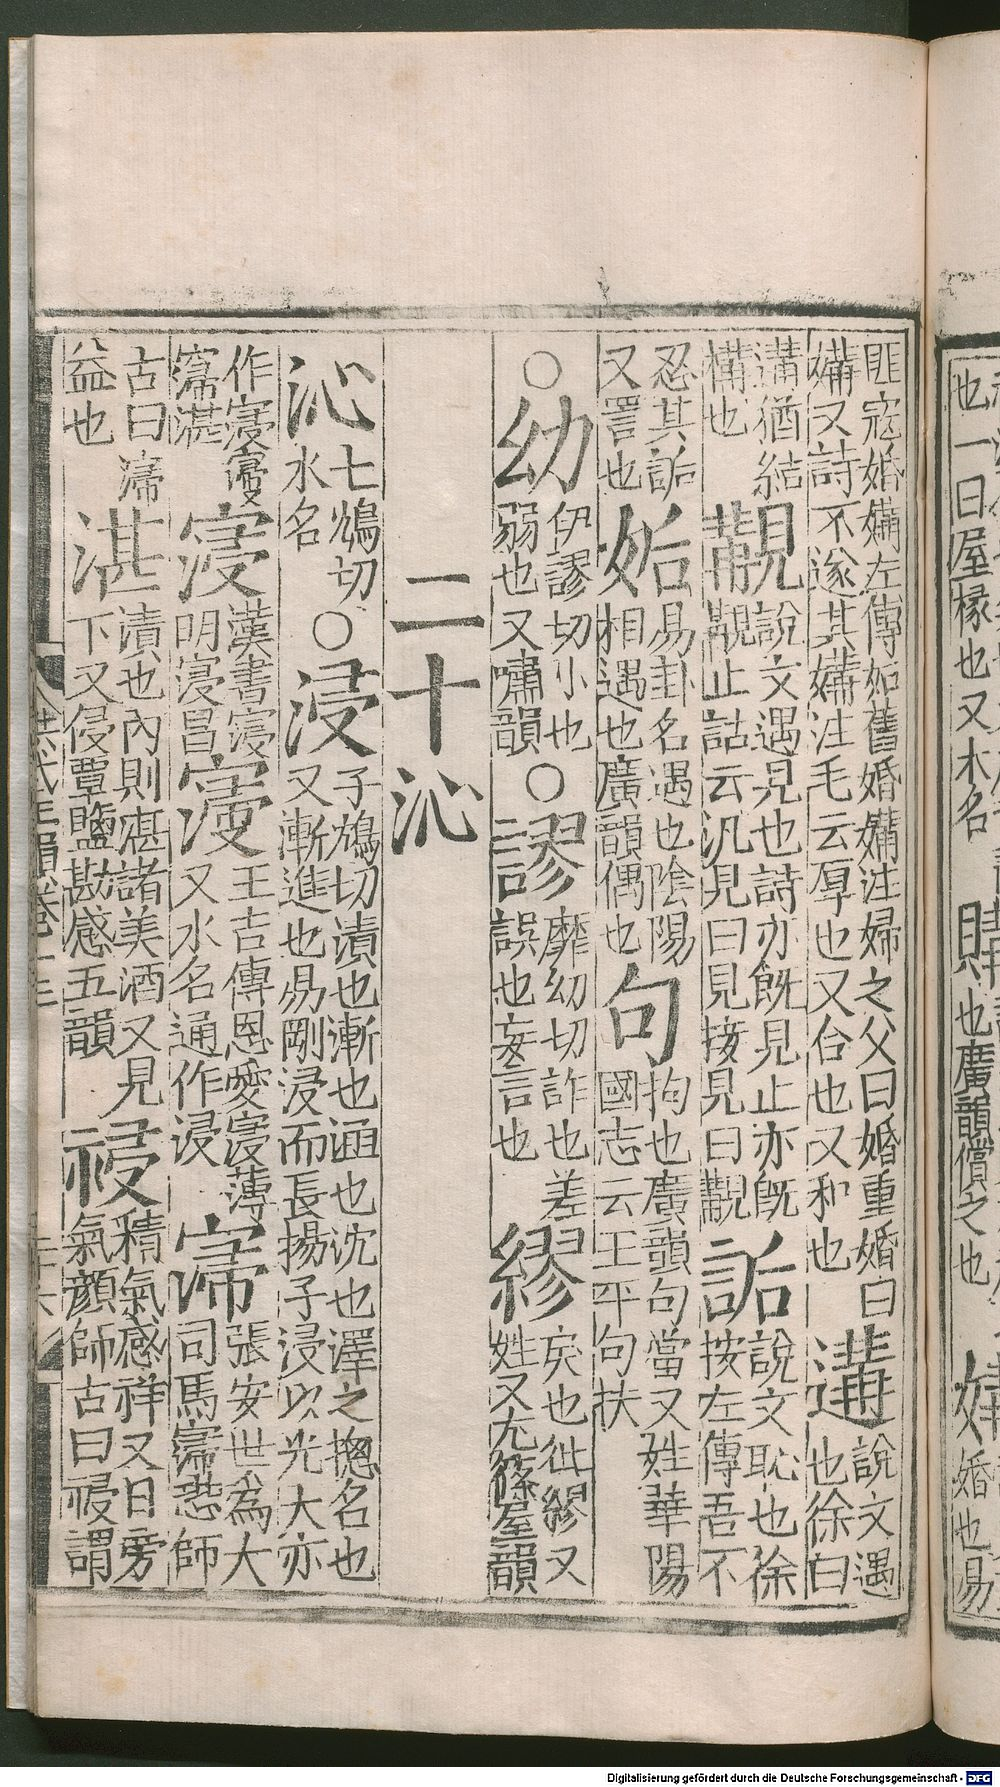 匪寇婚媾左傳如舊婚媾注婦之父曰婚重婚曰
媾又詩不遂其媾注毛云厚也又合也又和也 遘 說文遇
也徐曰
遘猶結
構也 覯 說文遇見也詩亦旣見止亦旣
覯止詁云汎見曰見接見曰覯 詬 說文恥也徐
按左傳吾不
忍其詬
又詈也 姤 易卦名遇也陰陽
相遇也廣韻偶也 句 拘也廣韻句當又姓華陽
國志云王平句扶
○幼 伊謬切小也
弱也又嘯韻 ○謬 靡幼切詐也差
誤也妄言也 繆 戾也紕繆又
姓又尤篠屋韻
二十沁
沁 七鴆切
水名 ○浸 子鴆切漬也漸也涵也沈也澤之摠名也
又漸進也易剛浸而長揚子浸以光大亦
作寖𡩻
㝲湛 寖 漢書寖
明寖昌 𡩻 王吉傳恩愛寖薄
又水名通作浸 㝲 張安世爲大
司馬㝲恐師
古曰㝲
益也 湛 漬也內則湛諸美酒又見
下又侵覃鹽勘感五韻 祲 精氣感祥又日旁
氣顏師古曰祲謂
也一曰屋椽也又木名
也廣韻償之也
婚也易
Digitalisierung gefördert durch die Deutsche Forschungsgemeinschaft - DFG